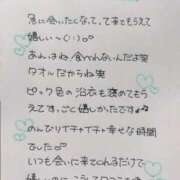 急に会いたくなって、って来てもらえて
嬉しい〜(᎑)♡
あれはね、食べれないんだよ笑
タオルだからね笑
ピック色の浴衣も褒めてもら
えてす。ごく嬉しかったです
のんびりイチャイチャ幸せな時間
でした♡
いつも会いに来てくれるだけで
嬉しいのに